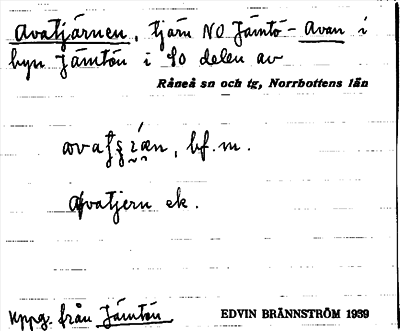 Avatjärnen, tjärn NO Jämtö-Avan i
byn Jämtön i SO delen av
Råneå sn och tg, Norrbottens län
bf. m.
Avatjern ek.
uppg. från Jämtön
EDVIN BRÄNNSTRÖM 1939